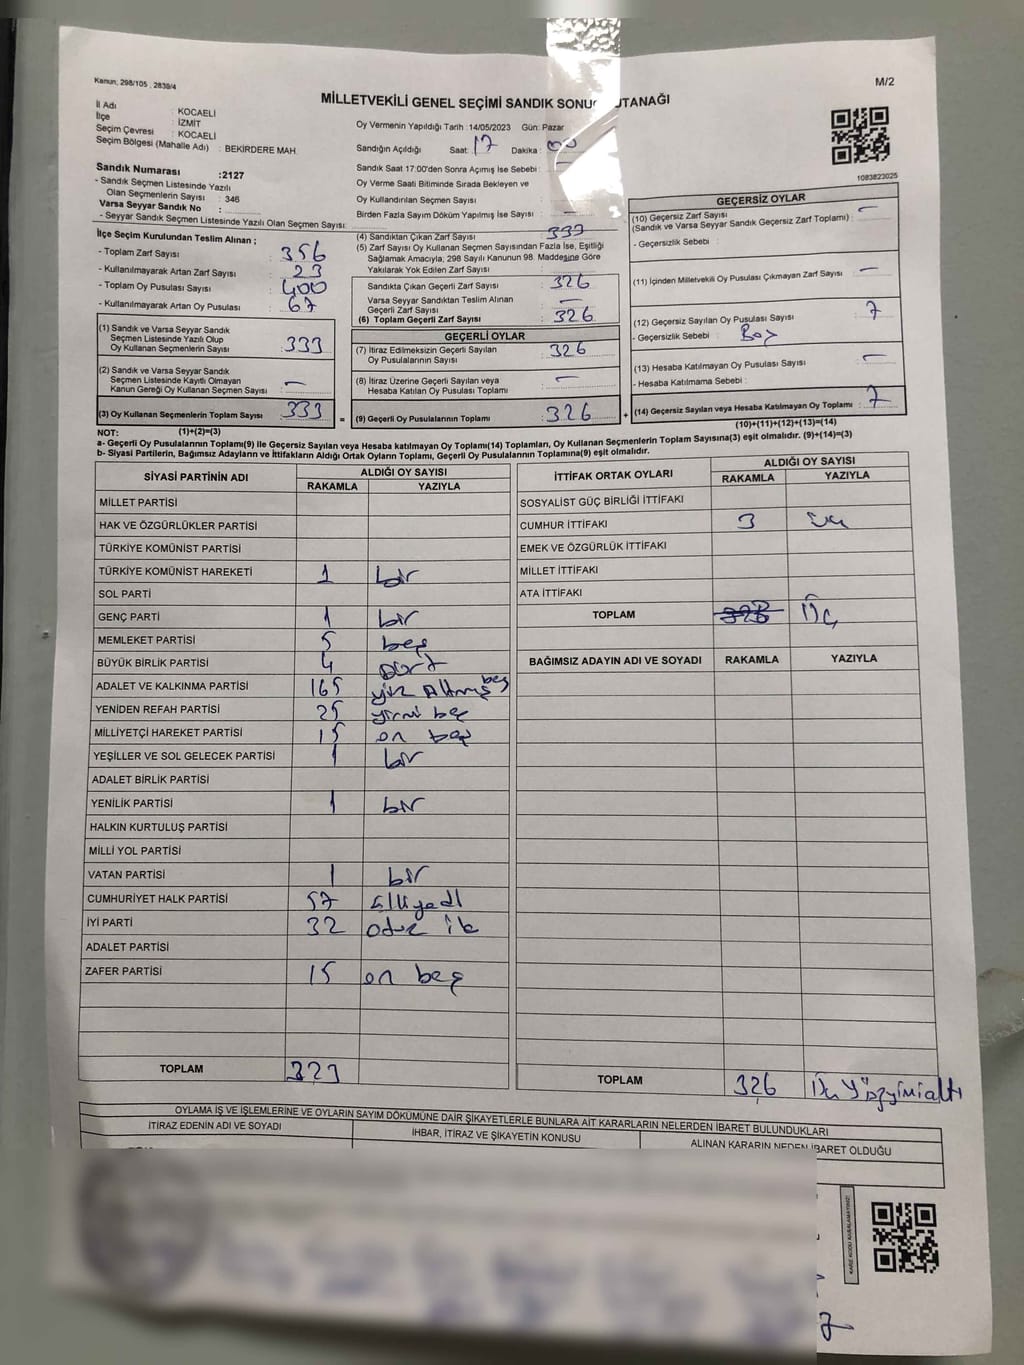 Kanun; 298/105 , 2839/4
M/2
MİLLETVEKİLİ GENEL SEÇİMİ SANDIK SONUÇ TUTANAĞI
İl Adı : KOCAELİ
İlçe : İZMİT
Seçim Çevresi : KOCAELİ
Seçim Bölgesi (Mahalle Adı) : BEKİRDERE MAH.
Sandık Numarası :2127
- Sandık Seçmen Listesinde Yazılı
Olan Seçmenlerin Sayısı : 346
Varsa Seyyar Sandık No :
- Seyyar Sandık Seçmen Listesinde Yazılı Olan Seçmen Sayısı:
İlçe Seçim Kurulundan Teslim Alınan ;
- Toplam Zarf Sayısı : 356
- Kullanılmayarak Artan Zarf Sayısı : 23
- Toplam Oy Pusulası Sayısı : 400
- Kullanılmayarak Artan Oy Pusulası : 67
(1) Sandık ve Varsa Seyyar Sandık
Seçmen Listesinde Yazılı Olup
Oy Kullanan Seçmenlerin Sayısı : 333
(2) Sandık ve Varsa Seyyar Sandık
Seçmen Listesinde Kayıtlı Olmayan
Kanun Gereği Oy Kullanan Seçmen Sayısı : —
(3) Oy Kullanan Seçmenlerin Toplam Sayısı : 333
(1)+(2)=(3)
Oy Vermenin Yapıldığı Tarih :14/05/2023 Gün: Pazar
Sandığın Açıldığı Saat: 17 Dakika : 00
Sandık Saat 17:00'den Sonra Açımış İse Sebebi : —
Oy Verme Saati Bitiminde Sırada Bekleyen ve
Oy Kullandırılan Seçmen Sayısı :
Birden Fazla Sayım Döküm Yapılmış İse Sayısı : —
(4) Sandıktan Çıkan Zarf Sayısı : 333
(5) Zarf Sayısı Oy Kullanan Seçmen Sayısından Fazla İse, Eşitliği
Sağlamak Amacıyla; 298 Sayılı Kanunun 98. Maddesine Göre
Yakılarak Yok Edilen Zarf Sayısı :
Sandıkta Çıkan Geçerli Zarf Sayısı : 326
Varsa Seyyar Sandıktan Teslim Alınan
Geçerli Zarf Sayısı : —
(6) Toplam Geçerli Zarf Sayısı : 326
GEÇERLİ OYLAR
(7) İtiraz Edilmeksizin Geçerli Sayılan
Oy Pusulalarının Sayısı : 326
(8) İtiraz Üzerine Geçerli Sayılan veya
Hesaba Katılan Oy Pusulası Toplamı : —
= (9) Geçerli Oy Pusulalarının Toplamı : 326 +
1083823025
GEÇERSİZ OYLAR
(10) Geçersiz Zarf Sayısı : —
(Sandık ve Varsa Seyyar Sandık Geçersiz Zarf Toplamı)
- Geçersizlik Sebebi :
(11) İçinden Milletvekili Oy Pusulası Çıkmayan Zarf Sayısı : —
(12) Geçersiz Sayılan Oy Pusulası Sayısı : 7
- Geçersizlik Sebebi : Boş
(13) Hesaba Katılmayan Oy Pusulası Sayısı : —
- Hesaba Katılmama Sebebi :
(14) Geçersiz Sayılan veya Hesaba Katılmayan Oy Toplamı : 7
(10)+(11)+(12)+(13)=(14)
NOT:
a- Geçerli Oy Pusulalarının Toplamı(9) ile Geçersiz Sayılan veya Hesaba katılmayan Oy Toplamı(14) Toplamları, Oy Kullanan Seçmenlerin Toplam Sayısına(3) eşit olmalıdır. (9)+(14)=(3)
b- Siyasi Partilerin, Bağımsız Adayların ve İttifakların Aldığı Ortak Oyların Toplamı, Geçerli Oy Pusulalarının Toplamına(9) eşit olmalıdır.
SİYASİ PARTİNİN ADI
ALDIĞI OY SAYISI
RAKAMLA YAZIYLA
MİLLET PARTİSİ
HAK VE ÖZGÜRLÜKLER PARTİSİ
TÜRKİYE KOMÜNİST PARTİSİ
TÜRKİYE KOMÜNİST HAREKETİ 1 bir
SOL PARTİ
GENÇ PARTİ 1 bir
MEMLEKET PARTİSİ 5 beş
BÜYÜK BİRLİK PARTİSİ 4 dört
ADALET VE KALKINMA PARTİSİ 165 yüz Altmış beş
YENİDEN REFAH PARTİSİ 25 yirmi beş
MİLLİYETÇİ HAREKET PARTİSİ 15 on beş
YEŞİLLER VE SOL GELECEK PARTİSİ 1 bir
ADALET BİRLİK PARTİSİ
YENİLİK PARTİSİ 1 bir
HALKIN KURTULUŞ PARTİSİ
MİLLİ YOL PARTİSİ
VATAN PARTİSİ 1 bir
CUMHURİYET HALK PARTİSİ 57 Elliyedi
İYİ PARTİ 32 otuz iki
ADALET PARTİSİ
ZAFER PARTİSİ 15 on beş
TOPLAM 323
İTTİFAK ORTAK OYLARI
ALDIĞI OY SAYISI
RAKAMLA YAZIYLA
SOSYALİST GÜÇ BİRLİĞİ İTTİFAKI
CUMHUR İTTİFAKI 3 üç
EMEK VE ÖZGÜRLÜK İTTİFAKI
MİLLET İTTİFAKI
ATA İTTİFAKI
TOPLAM Üç
BAĞIMSIZ ADAYIN ADI VE SOYADI RAKAMLA YAZIYLA
TOPLAM 326 Üç Yüzyirmialtı
OYLAMA İŞ VE İŞLEMLERİNE VE OYLARIN SAYIM DÖKÜMÜNE DAİR ŞİKAYETLERLE BUNLARA AİT KARARLARIN NELERDEN İBARET BULUNDUKLARI
İTİRAZ EDENİN ADI VE SOYADI
İHBAR, İTİRAZ VE ŞİKAYETİN KONUSU
ALINAN KARARIN NEDEN İBARET OLDUĞU
KARE KODU KARALAMAYINIZ!